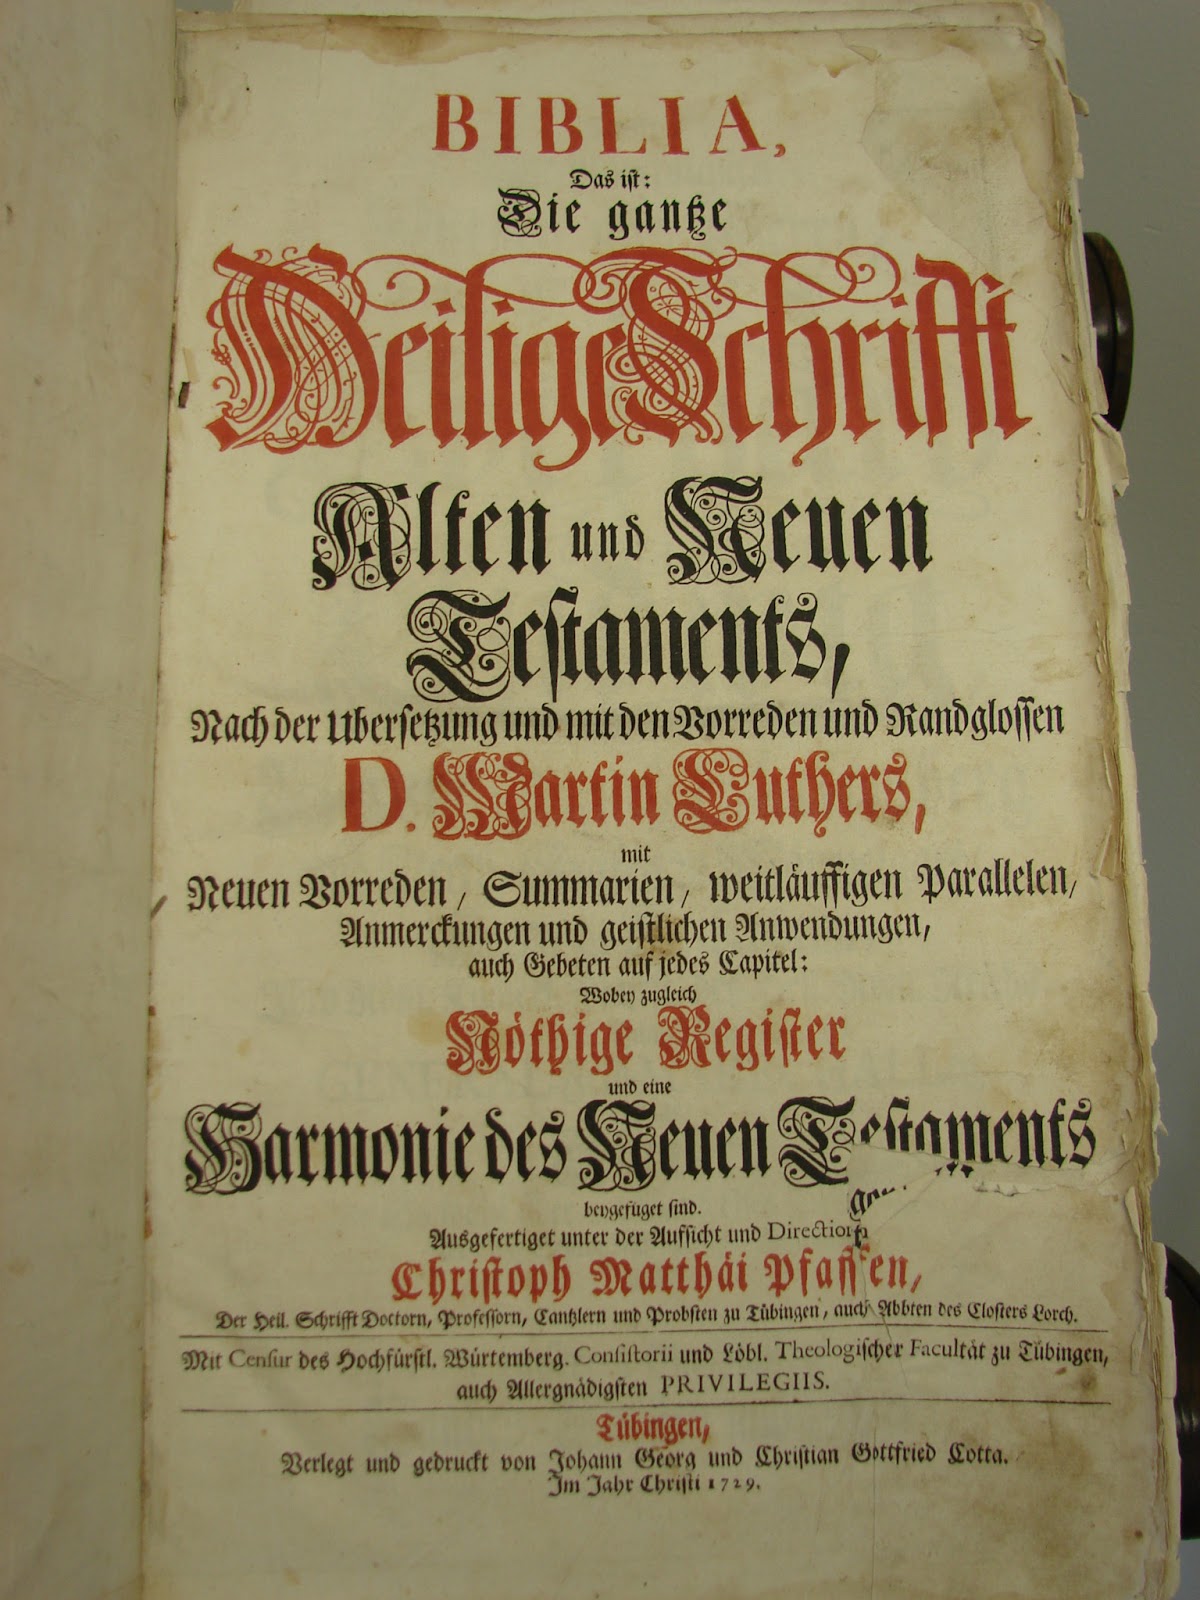 BIBLIA,
Das ist:
Die gantze
Heilige Schrifft
Alten und Neuen
Testaments,
Nach der Ubersetzung und mit den Vorreden und Randglossen
D. Martin Luthers,
mit
Neuen Vorreden, Summarien, weitläuffigen Parallelen,
Anmerckungen und geistlichen Anwendungen,
auch Gebeten auf jedes Capitel:
Wobey zugleich
Nöthige Register
und eine
Harmonie des Neuen Testaments
beygefüget sind.
Ausgefertiget unter der Aufsicht und Direction
Christoph Matthäi Pfaffen,
Der Heil. Schrifft Doctorn, Professorn, Cantzlern und Probsten zu Tübingen, auch Abbten des Closters Lorch.
Mit Censur des Hochfürstl. Würtemberg. Consistorii und Löbl. Theologischer Facultät zu Tübingen,
auch Allergnädigsten PRIVILEGIIS.
Tübingen,
Verlegt und gedruckt von Johann Georg und Christian Gottfried Cotta.
Im Jahr Christi 1729.